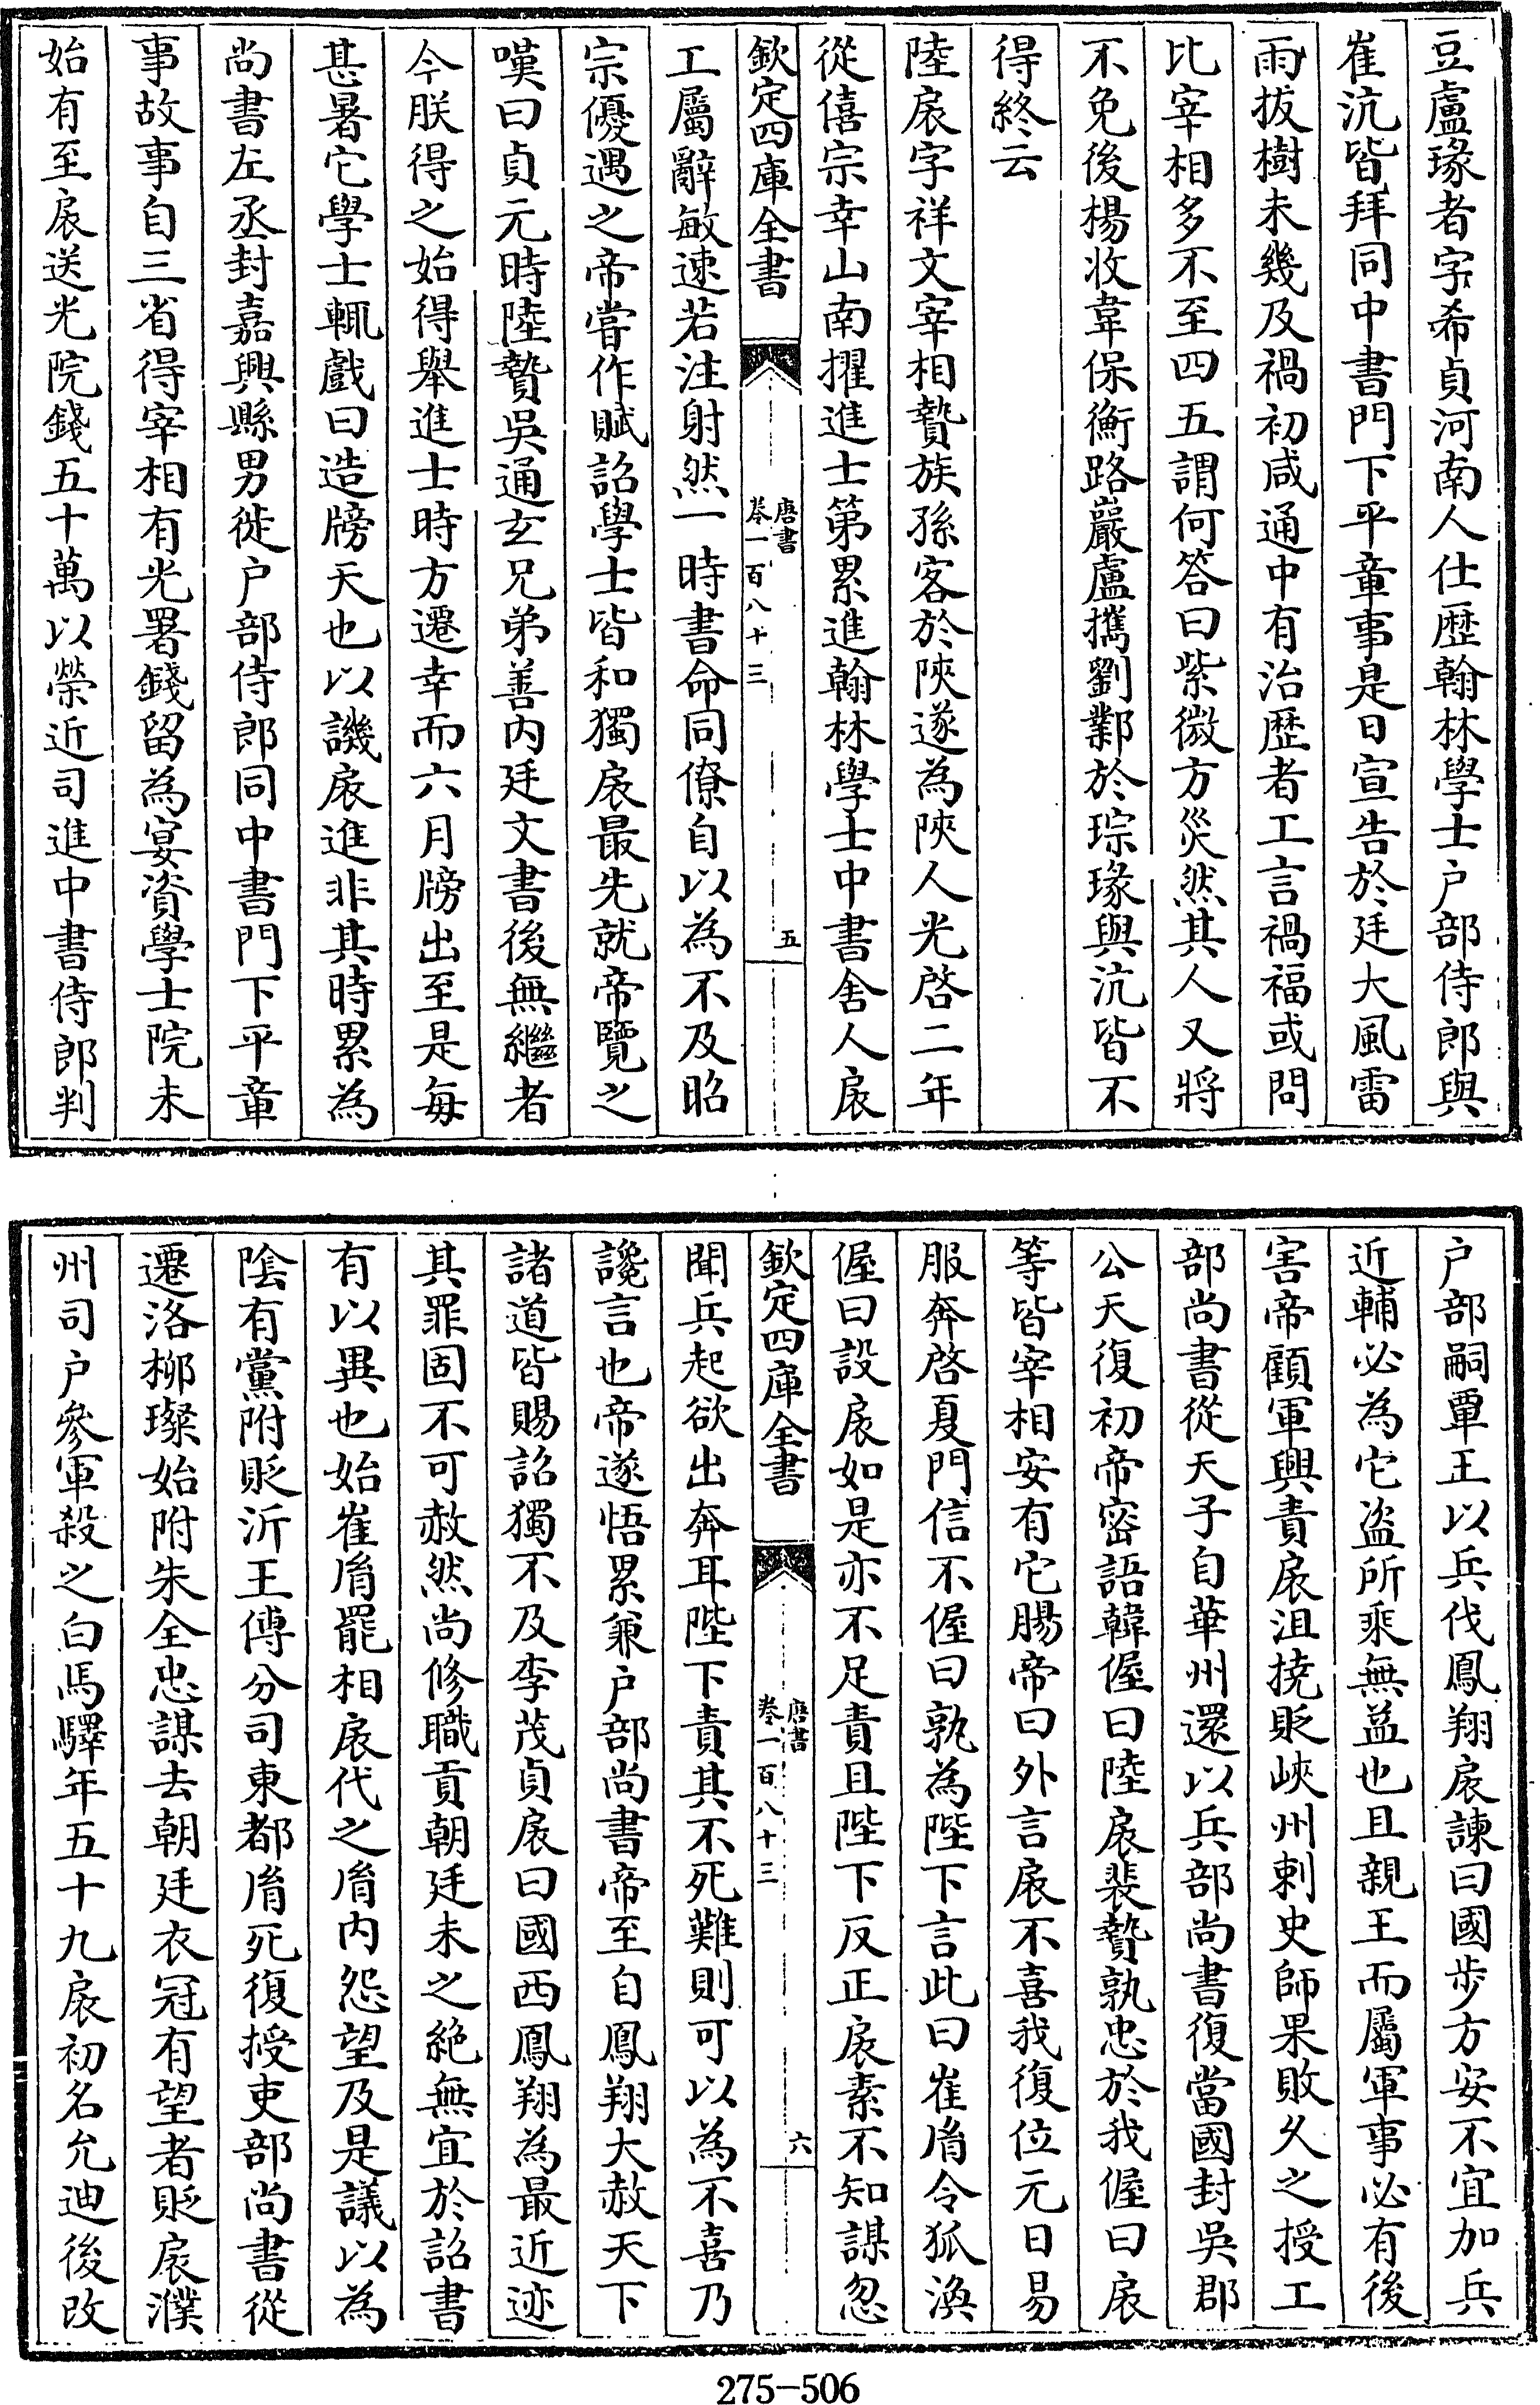 豆盧瑑者字希貞河南人仕歷翰林學士户部侍郎與
崔沆皆拜同中書門下平章事是日宣告於廷大風雷
雨拔樹未幾及禍初咸通中有治歷者工言禍福或問
比宰相多不至四五謂何答曰紫微方災然其人又將
不免後楊收韋保衡路巖盧攜劉鄴於琮瑑與沆皆不
得終云
陸扆字祥文宰相贄族孫客於陝遂為陝人光啓二年
從僖宗幸山南擢進士第累進翰林學士中書舍人扆
欽定四庫全書
唐書
卷一百八十三
五
工屬辭敏速若注射然一時書命同僚自以為不及昭
宗優遇之帝嘗作賦詔學士皆和獨扆最先就帝覽之
嘆曰貞元時陸贄吳通玄兄弟善内廷文書後無繼者
今朕得之始得舉進士時方遷幸而六月牓出至是每
甚暑它學士輒戲曰造牓天也以譏扆進非其時累為
尚書左丞封嘉興縣男徙户部侍郎同中書門下平章
事故事自三省得宰相有光署錢留為宴資學士院未
始有至扆送光院錢五十萬以榮近司進中書侍郎判
户部嗣覃王以兵伐鳳翔扆諫曰國步方安不宜加兵
近輔必為它盜所乘無益也且親王而屬軍事必有後
害帝顧軍興責扆沮撓貶峽州刺史師果敗久之授工
部尚書從天子自華州還以兵部尚書復當國封吳郡
公天復初帝密語韓偓曰陸扆裴贄孰忠於我偓曰扆
等皆宰相安有它腸帝曰外言扆不喜我復位元日易
服奔啓夏門信不偓曰孰為陛下言此曰崔胤令狐渙
偓曰設扆如是亦不足責且陛下反正扆素不知謀忽
欽定四庫全書
唐書
卷一百八十三
六
聞兵起欲出奔耳陛下責其不死難則可以為不喜乃
讒言也帝遂悟累兼户部尚書帝至自鳳翔大赦天下
諸道皆賜詔獨不及李茂貞扆曰國西鳳翔為最近迹
其罪固不可赦然尚修職貢朝廷未之絕無宜於詔書
有以異也始崔胤罷相扆代之胤内怨望及是議以為
陰有黨附貶沂王傅分司東都胤死復授吏部尚書從
遷洛柳璨始附朱全忠謀去朝廷衣冠有望者貶扆濮
州司户參軍殺之白馬驛年五十九扆初名允迪後改
275-506